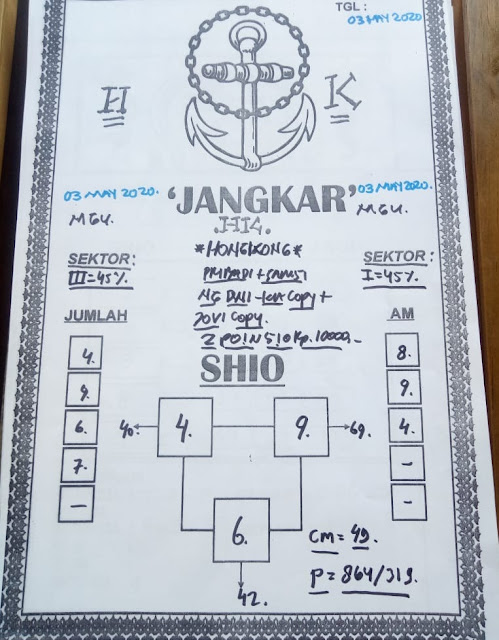 TGL :
03 MAY 2020
H
K
03 MAY 2020.
'JANGKAR'
03 MAY 2020.
MGU.
HK.
MGU.
*HONGKONG*
SEKTOR :
III=45%
SEKTOR :
I=45%
copy +
copy.
Kp. 10000,-
JUMLAH
AM
SHIO
4.
9.
6.
7.
-
8.
9.
4.
-
-
40.
4.
9.
69.
6.
42.
CM = 49.
P = 864/319.